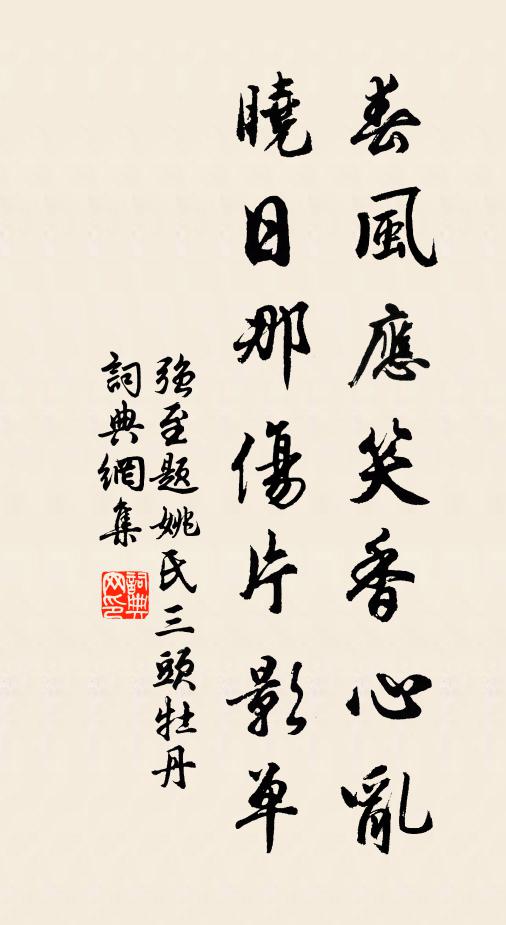 春風應笑香心亂
曉日那傷片影單
强至題姚氏三頭牡丹
詞典網集
詞典网印